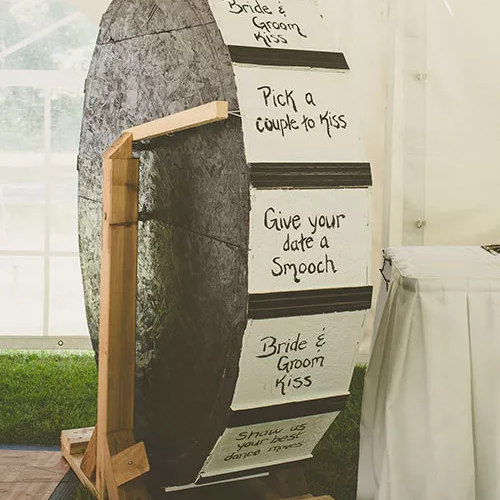 Bride &
Groom
Kiss
Pick a
couple to Kiss
Give your
date a
Smooch
Bride &
Groom
Kiss
Show us
your best
dance moves